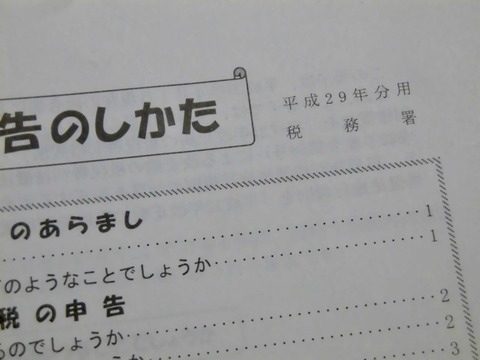 告のしかた
平成29年分用
税務署
のあらまし
・・・・・・・・・・・・・・・・・・・・・・・・・・・・・・1
のようなことでしょうか・・・・・・・・・・・・・・・・1
税の申告
・・・・・・・・・・・・・・・・・・・・・・・・・・・・・・2
るのでしょうか・・・・・・・・・・・・・・・・・・・・・・2
うか・・・・・・・・・・・・・・・・・・・・・・・・・・3